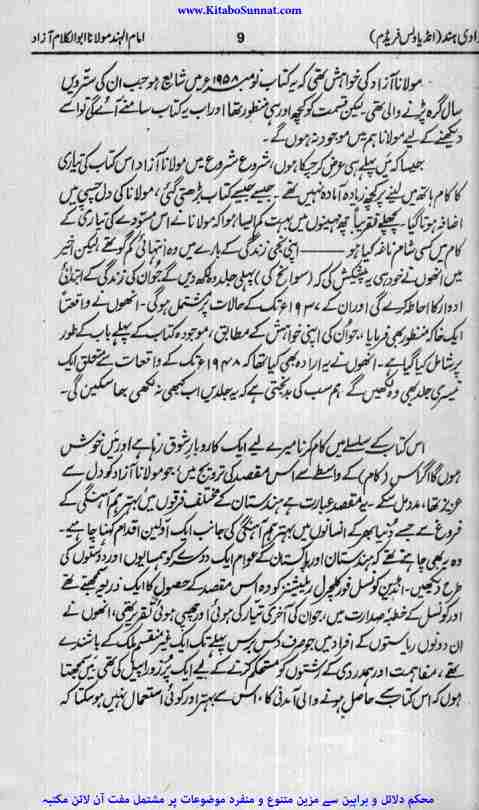 www.KitaboSunnat.com
امام الہند مولانا ابوالکلام آزاد 9 زادی ہند (انڈیا ونس فریڈم)
مولانا آزاد کی خواہش تھی کہ یہ کتاب نومبر ۱۹۵۸ء میں شایع ہو جب ان کی سترویں
سال گرہ پڑنے والی تھی۔ لیکن قسمت کو کچھ اور ہی منظور تھا اور اب یہ کتاب سامنے آئے گی تو اسے
دیکھنے کے لیے مولانا ہم میں موجود نہ ہوں گے۔
جیسا کہ میں پہلے ہی عرض کر چکا ہوں، شروع شروع میں مولانا آزاد اس کتاب کی تیاری
کا کام ہاتھ میں لینے پر کچھ زیادہ آمادہ نہیں تھے۔ جیسے جیسے کتاب بڑھتی گئی، مولانا کی دل چسپی میں
اضافہ ہوتا گیا۔ پچھلے تقریباً چھ مہینوں میں بہت کم ایسا ہوا کہ مولانا نے اس مسودے کی تیاری کے
کام میں کسی شام ناغہ کیا ہو —— اپنی نجی زندگی کے بارے میں وہ انتہائی کم گو تھے لیکن اخیر
میں انھوں نے خود ہی یہ پیشکش کی کہ (سوانح کی) پہلی جلد وہ لکھ دیں گے جو ان کی زندگی کے ابتدائی
ادوار کا احاطہ کرے گی اور ان کے ۱۹۳۷ء تک کے حالات پر مشتمل ہوگی۔ انھوں نے واقعتاً
ایک خاکہ منظور بھی فرمایا، جو ان کی اپنی خواہش کے مطابق، موجودہ کتاب کے پہلے باب کے طور
پر شامل کیا گیا ہے۔ انھوں نے یہ ارادہ بھی کیا تھا کہ ۱۹۴۸ء تک کے واقعات سے متعلق ایک
تیسری جلد بھی وہ لکھیں گے ہم سب کی بدبختی ہے کہ یہ جلدیں اب کبھی نہ لکھی جا سکیں گی۔
اس کتاب کے سلسلے میں کام کرنا میرے لیے ایک کاروبارِ شوق رہا ہے اور میں خوش
ہوں گا اگر اس (کام) کے واسطے سے اس مقصد کی ترویج میں، جو مولانا آزاد کو دل سے
عزیز تھا، مدد مل سکے۔ یہ مقصد عبارت ہے ہندستان کے مختلف فرقوں میں بہتر ہم آہنگی کے
فروغ سے جسے دنیا بھر کے انسانوں میں بہتر ہم آہنگی کی جانب ایک اولین اقدام کہنا چاہیے۔
وہ یہ بھی چاہتے تھے کہ ہندستان اور پاکستان کے عوام ایک دوسرے کو ہمسایوں اور دوستوں کی
طرح دیکھیں۔ انڈین کونسل فور کلچرل ریلیشنز کو وہ اس مقصد کے حصول کا ایک ذریعہ سمجھتے تھے
اور کونسل کے خطبۂ صدارت میں، جو ان کی آخری تیار کی ہوئی اور چھپی ہوئی تقریر تھی، انھوں نے
ان دونوں ریاستوں کے افراد میں جو صرف دس برس پہلے تک ایک غیر منقسم ملک کے باشندے
تھے، مفاہمت اور ہمدردی کے رشتوں کو مستحکم کرنے کے لیے ایک پُرزور اپیل کی تھی۔ میں سمجھتا
ہوں کہ اس کتاب سے حاصل ہونے والی آمدنی کا، اس سے بہتر اور کوئی استعمال نہیں ہو سکتا کہ
محکم دلائل و براہین سے مزین متنوع و منفرد موضوعات پر مشتمل مفت آن لائن مکتبہ